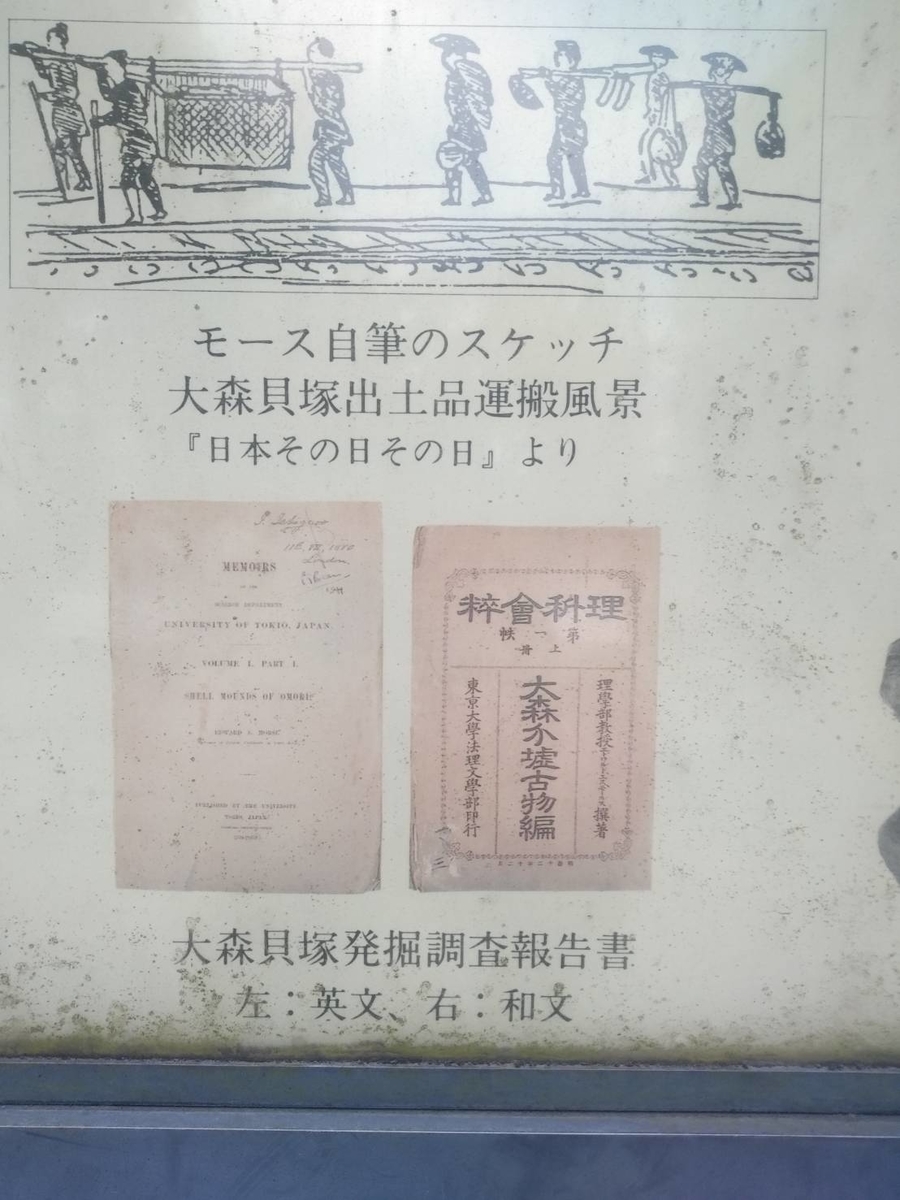 モース自筆のスケッチ
大森貝塚出土品運搬風景
『日本その日その日』より
London
MEMOIRS
OF THE
SCIENCE DEPARTMENT,
UNIVERSITY OF TOKIO, JAPAN.
VOLUME I. PART I.
SHELL MOUNDS OF OMORI
BY
EDWARD S. MORSE
PUBLISHED BY THE UNIVERSITY
TOKIO, JAPAN
粹會科理
帙一第
册上
理學部教授
撰著
大森介墟古物編
東京大學法理文學部印行
大森貝塚発掘調査報告書
左：英文、右：和文